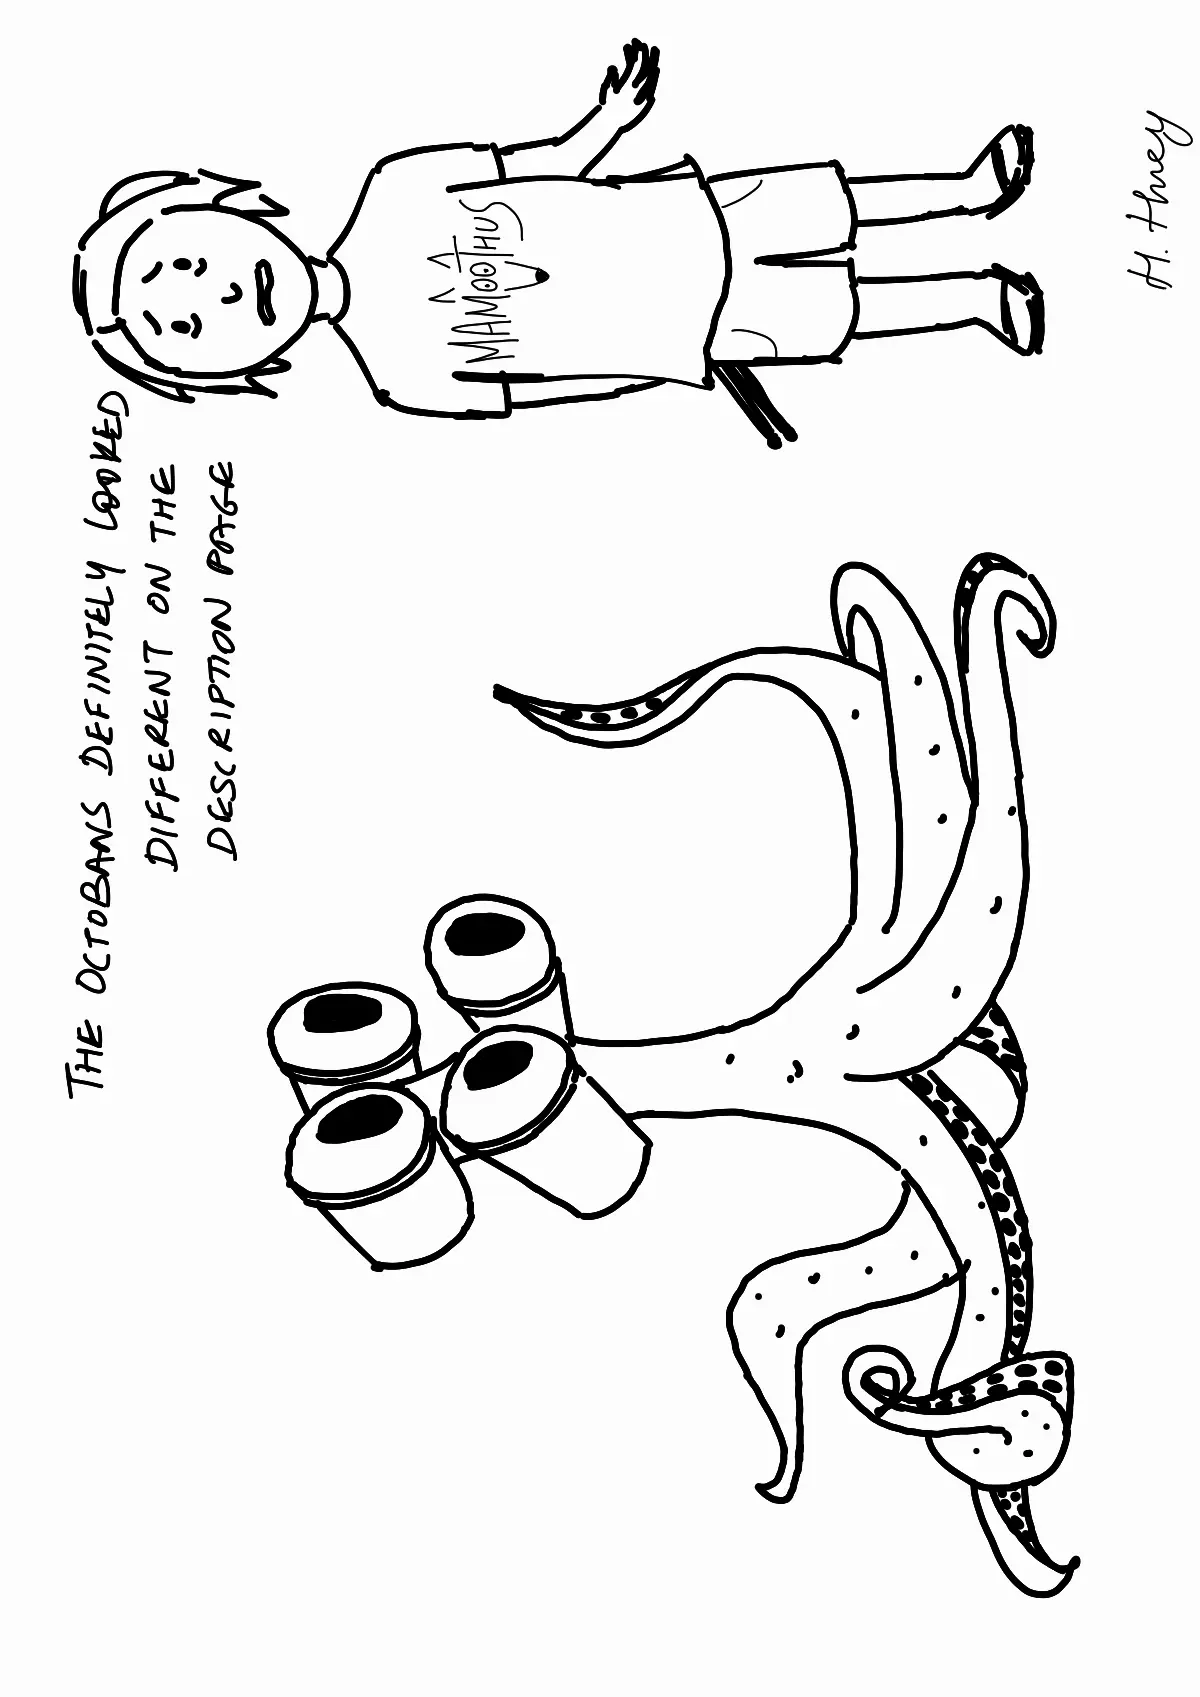 THE OCTOBANS DEFINITELY LOOKED
DIFFERENT ON THE
DESCRIPTION PAGE
MAMOOTHUS
H. thuey